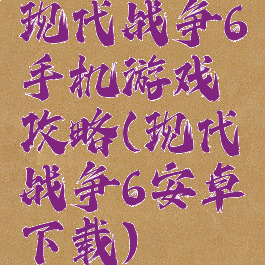 现代战争6
手机游戏
攻略(现代
战争6安卓
下载)